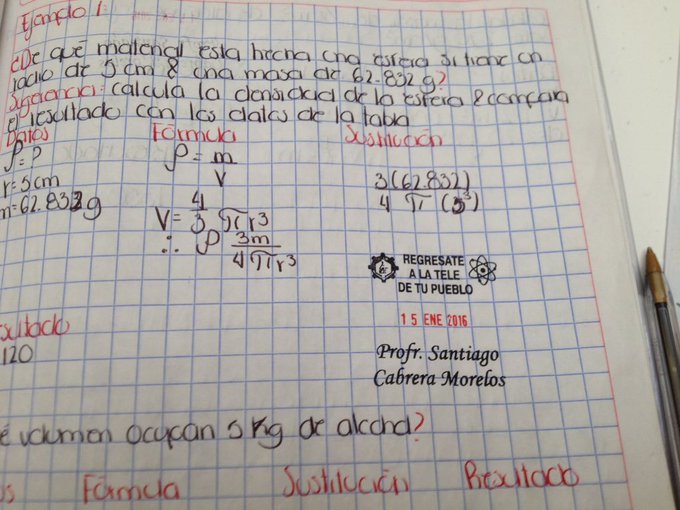 Ejemplo 1
¿De qué material esta hecha una esfera si tiene un
radio de 5 cm & una masa de 62.832 g?
Sugerencia: calcula la densidad de la esfera & compara
el resultado con los datos de la tabla
Datos Fórmula Sustitución
ρ=?
r=5cm
m=62.832g
ρ = m
V
V= 4
3 πr³
∴ ρ 3m
4πr³
3(62.832)
4 π (5³)
REGRESATE
A LA TELE
DE TU PUEBLO
15 ENE 2016
Profr. Santiago
Cabrera Morelos
sultado
120
é volumen ocupan 5 kg de alcohol?
os Fórmula Sustitución Resultado